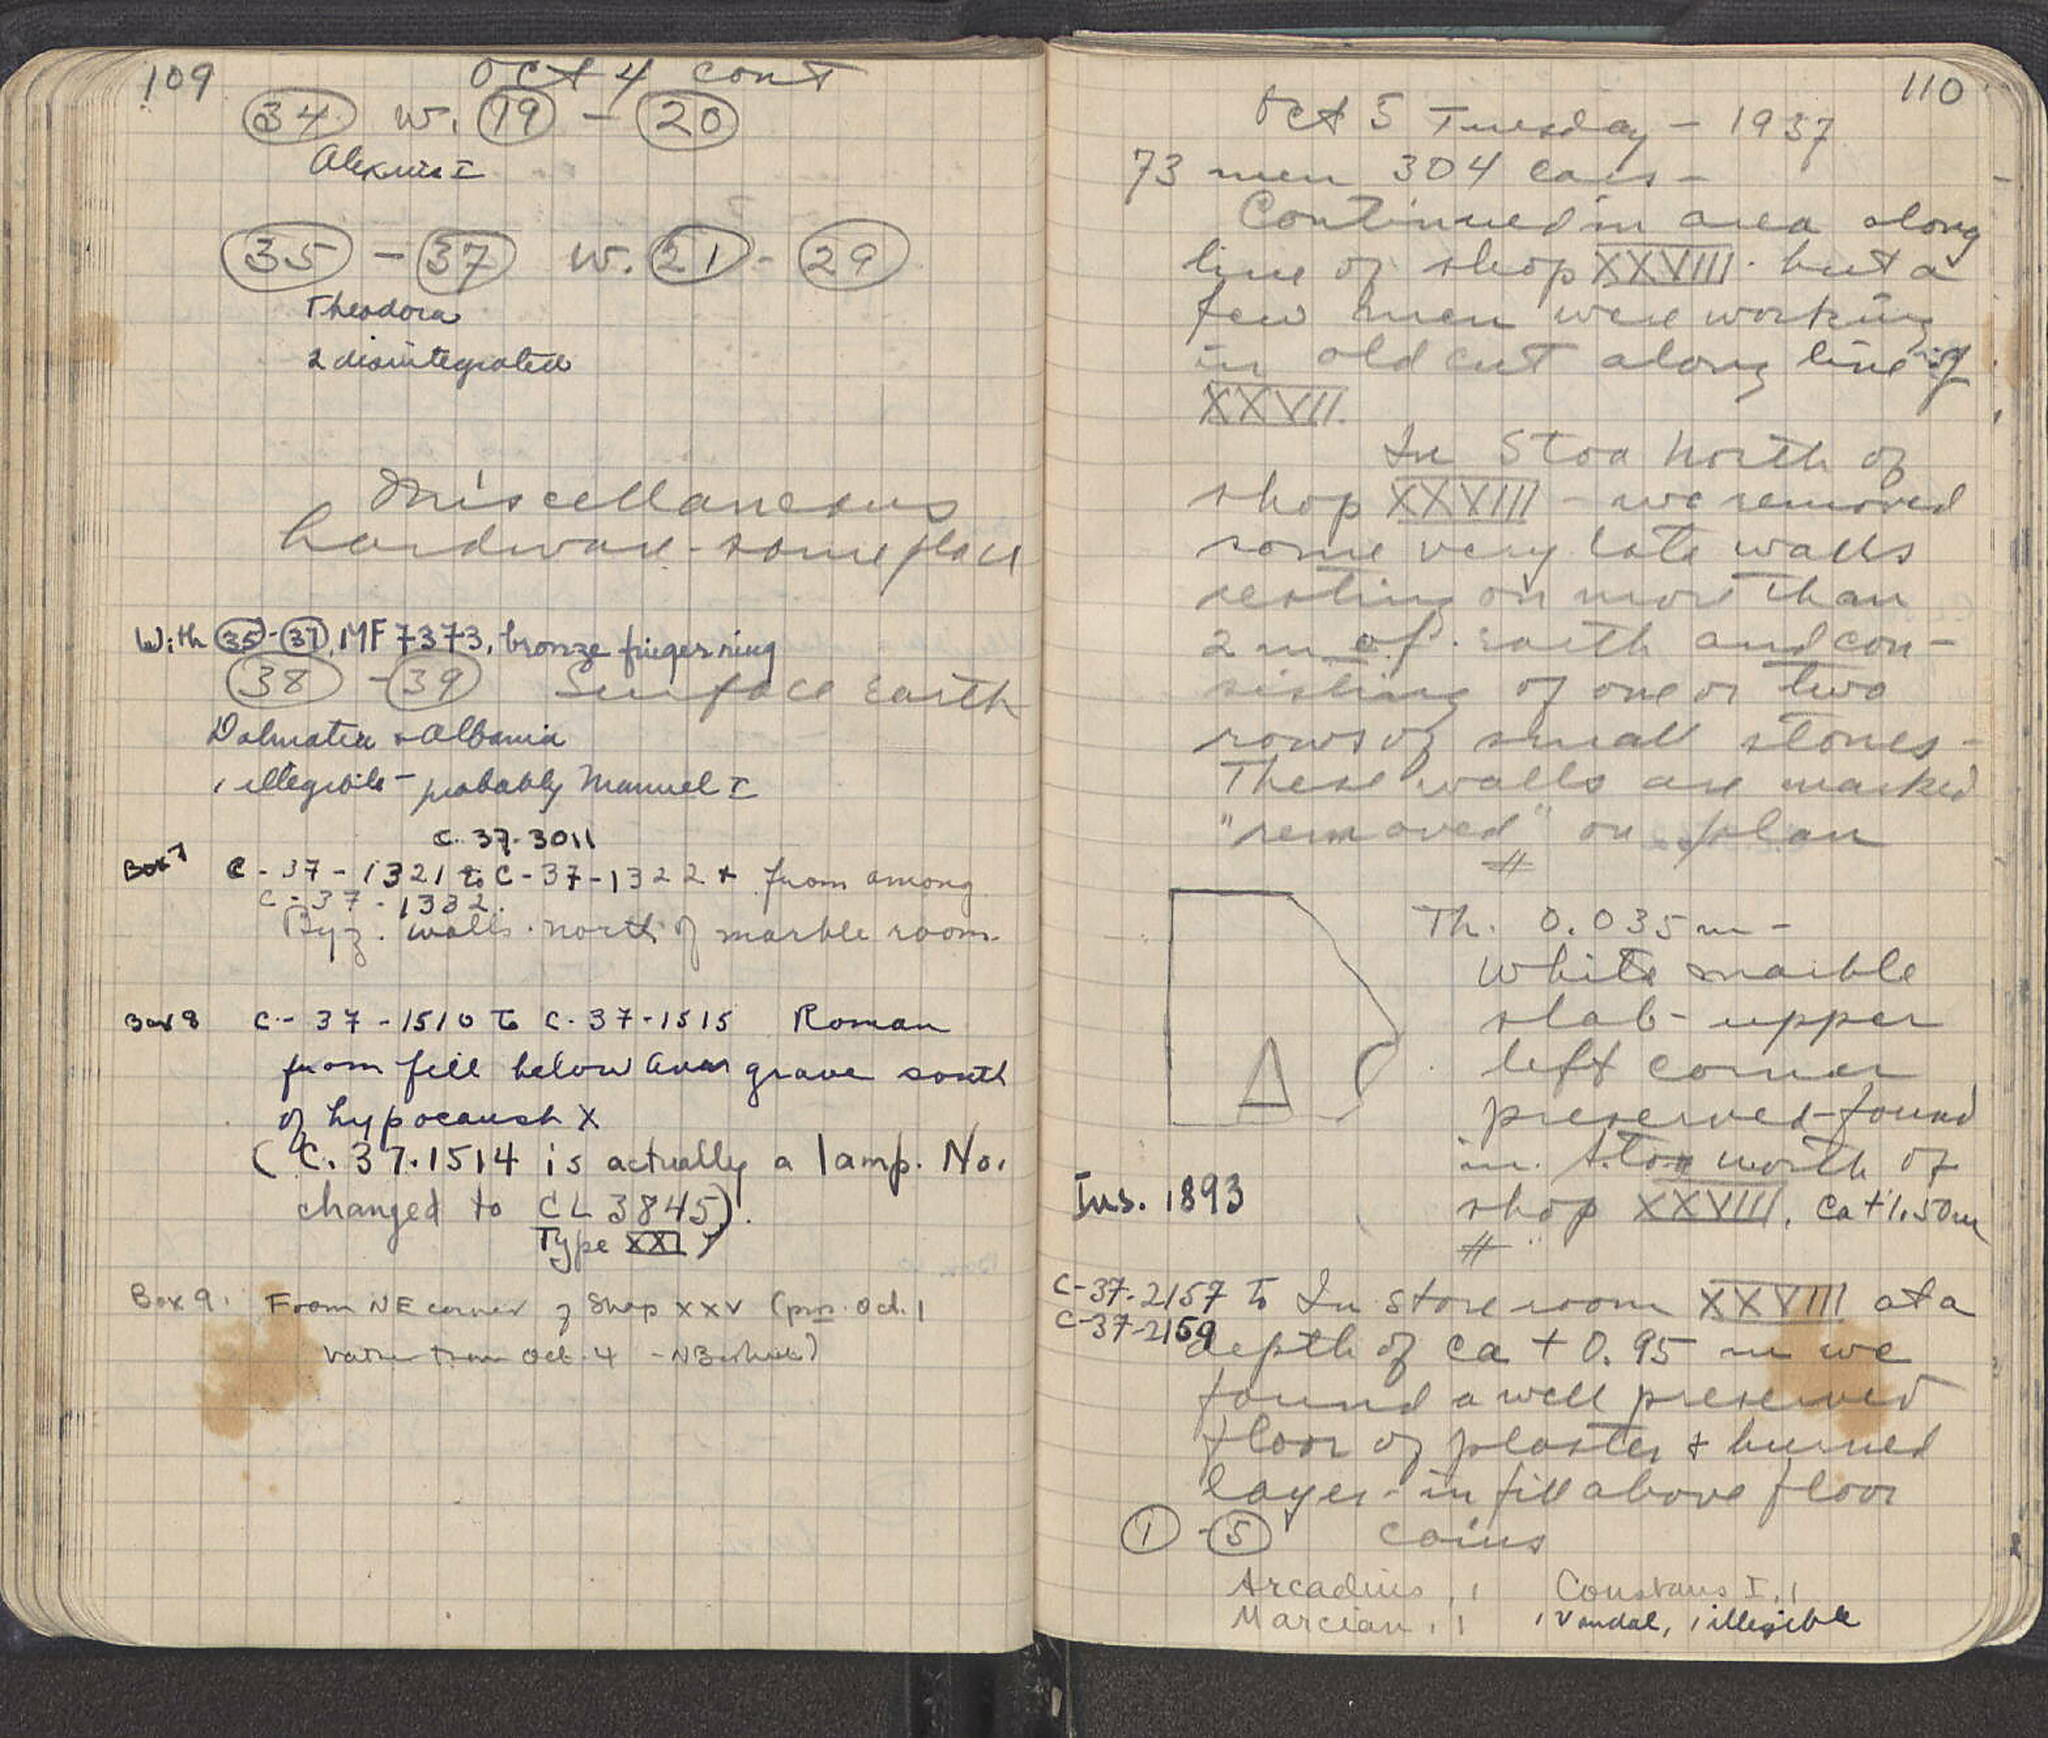 109
Oct 4 cont
34 w. 19 - 20
Alexius I
35 - 37 w. 21 - 29
Theodora
2 disintegrated
Miscellaneous
hardware - same place
With 35 - 37, MF 7373, bronze finger ring
38 - 39 Surface Earth
Dalmatia & Albania
1 illegible - probably Manuel I
C. 37-3011
Box 7 C-37-1321 to C-37-1322 + from among
C-37-1332.
Byz. walls north of marble room
Box 8 C-37-1510 to C-37-1515 Roman
from fill below Avar grave south
of hypocaust X
(C.37.1514 is actually a lamp. No.
changed to CL 3845).
Type XXI)
Box 9. From NE corner of Shop XXV (pro. Oct. 1
rather than Oct. 4 - N Box
110
Oct 5 Tuesday - 1937
73 men 304 cars -
Continued in area along
line of shop XXVIII. but a
few men were working
in old cut along line of
XXVII.
In Stoa North of
shop XXVIII - we removed
some very late walls
resting on more than
2 m of earth and con-
sisting of one or two
rows of small stones -
These walls are marked
"removed" on plan
#
Th. 0.035 m -
white marble
slab - upper
left corner
preserved - found
in Stoa north of
shop XXVIII, Ca +1.50m
#
Δ
Ins. 1893
C-37-2157 to
C-37-2159
In store room XXVIII at a
depth of ca + 0.95 m we
found a well preserved
floor of plaster & burned
layer - in fill above floor
1 - 5 coins
Arcadius, 1 Constans I, 1
Marcian, 1 1 Vandal, 1 illegible